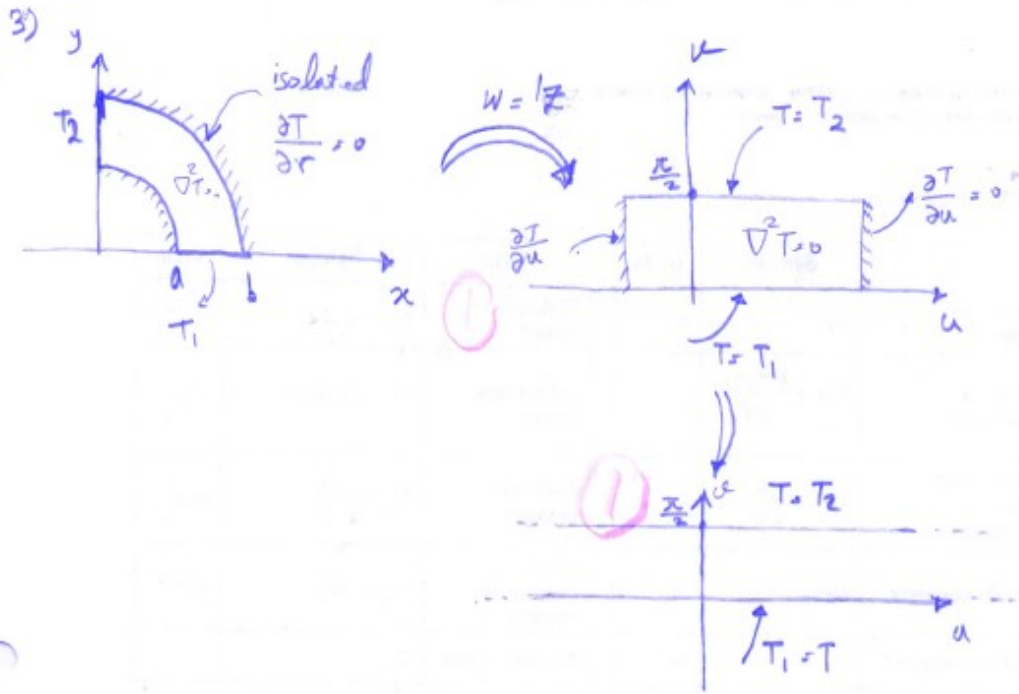 3)
y
isolated
∂T/∂r = 0
T2
∇²T=0
a
b
x
T1
W = lZ
v
T = T2
π/2
∂T/∂u
∇²T=0
∂T/∂u = 0
u
T = T1
1
1
v
π/2
T = T2
u
T1 = T